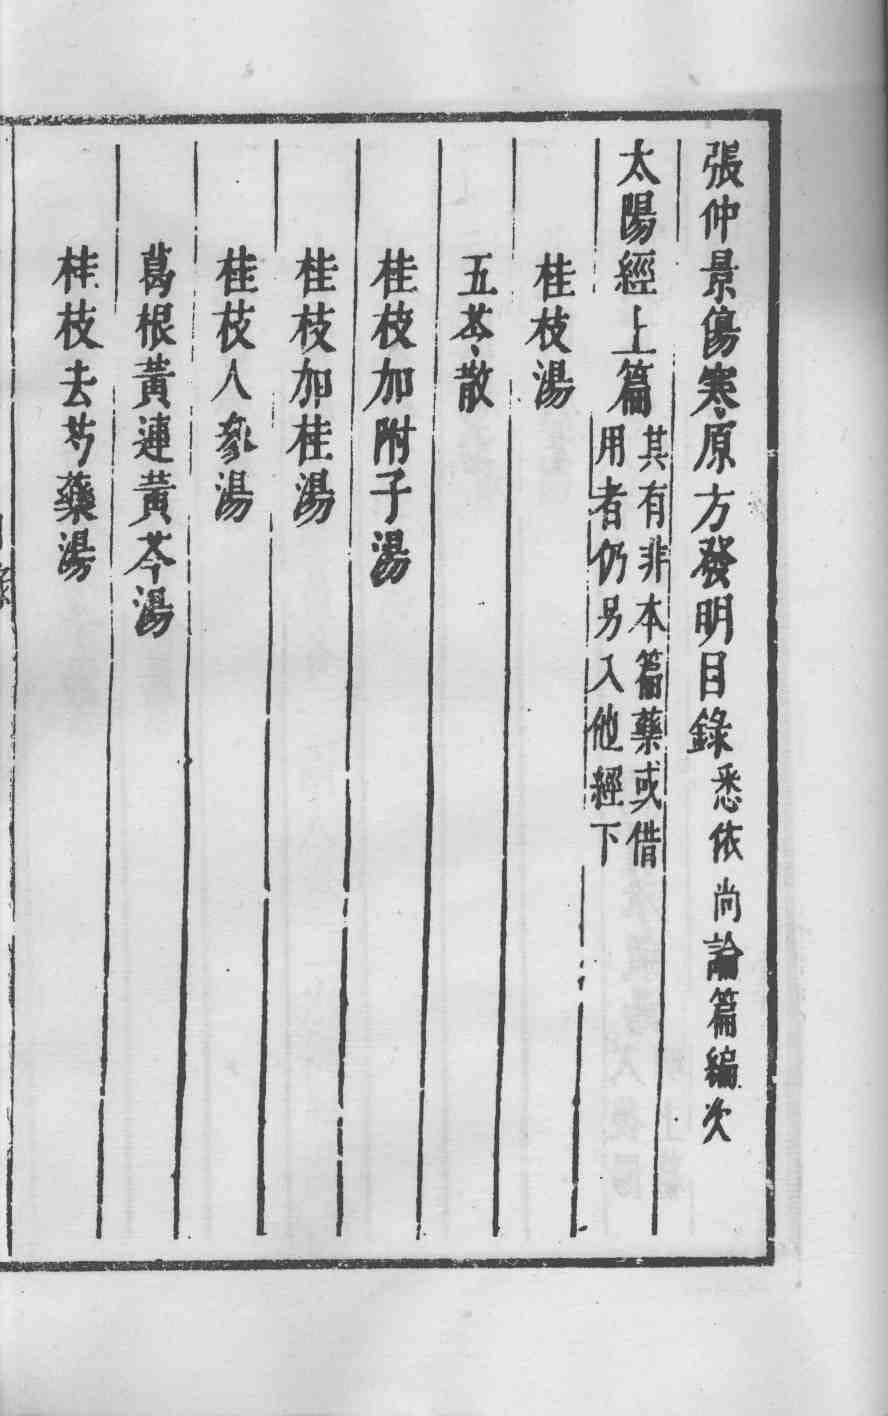 張仲景傷寒原方發明目錄悉依尚論篇編次
太陽經上篇其有非本篇藥或借
用者仍另入他經下
桂枝湯
五苓散
桂枝加附子湯
桂枝加桂湯
桂枝人參湯
葛根黃連黃芩湯
桂枝去芍藥湯